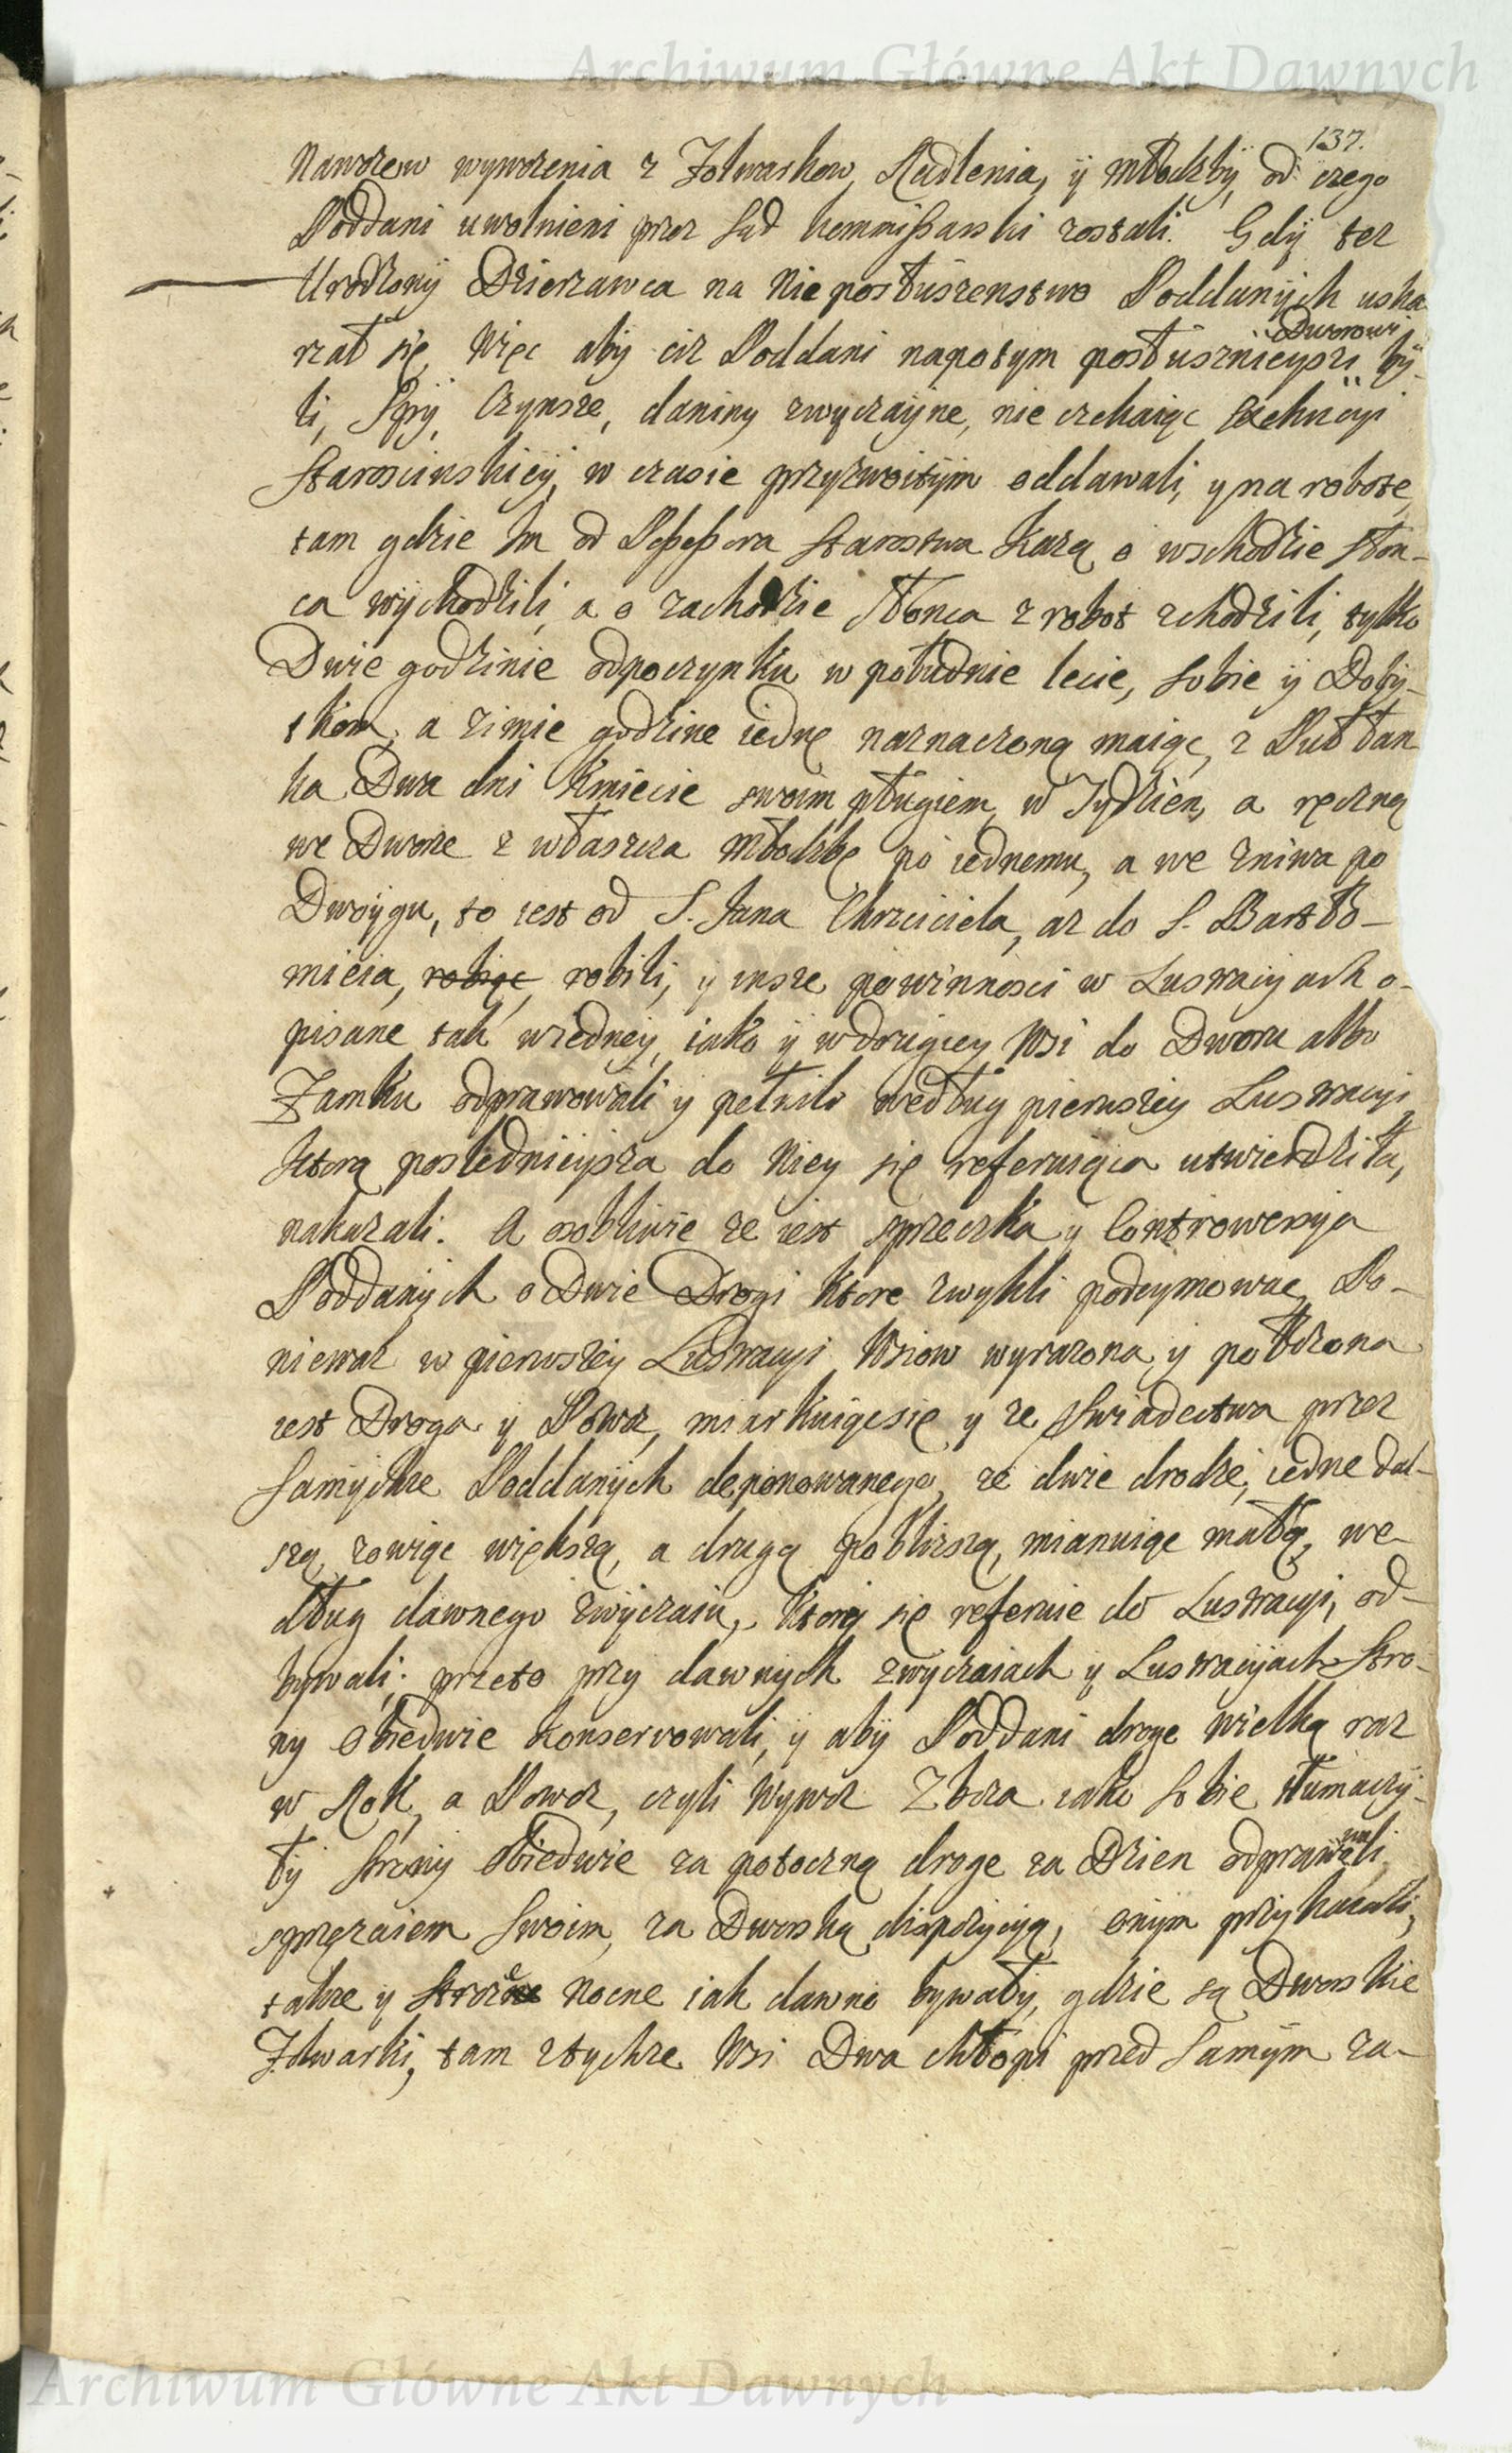 Archiwum Główne Akt Dawnych
137.
Nawozow wywozenia z Folwarkow, Radlenia, ÿ Młodzbÿ, od czego
Poddani uwolnieni przez Sąd kommissarski zostali. Gdÿ tez
Urodzonÿ Dzierzawca na Nieposłuszenstwo Poddanÿch uska-
rzał się, Więc abÿ ciz Poddani napotym posłusznieÿszi Dworowi bÿ-
li, Sepÿ, Czynsze, daninÿ zwyczaÿne, nie czekaiąc exekucÿi
Staroscinskieÿ, w czasie przyzwoitÿm oddawali, y na robotę,
tam gdzie Im od Possessora Starostwa Kazą o wschodzie słon-
ca wÿchodzili, a o zachodzie słonca z robot zchodzili, tylko
Dwie godzinie odpoczynku w południe lecie, sobie ÿ Dobÿ-
tkom, a zimie godzine iednę naznaczoną maiąc, z Puł łan
ka Dwa dni Kmiecie swoim pługiem w Tydzien, a ręczną
we Dworze zwłaszcza Młodzbę po iednemu, a we zniwa po
Dwoÿgu, to iest od S. Jana Chrzciciela, az do S. Bartło-
mieia, robiąc, robili, ÿ insze powinnosci w Lustracÿach o-
pisane tak wiedneÿ, iako ÿ wdrugiey Wsi do Dworu albo
Zamku odprawowali y pełnili według pierwszeÿ Lustracyi,
ktorą poslednieÿsza do Niey się referuiąca utwierdziła,
nakazali. A osobliwie ze iest sprzeczka y Controwersya
Poddanÿch o Dwie Drogi ktore zwykli podeymowac, Po-
niewaz w pierwszeÿ Lustracyi Wsiow wyrazona ÿ połozona
iest Droga ÿ Powoz, miarkuiąc się y ze Swiadectwa przez
Samÿchze Poddanÿch deponowanego, ze dwie drodze, iedne dal-
szą, zowiąc większą, a drugą poblizszą, mianuiąc małą, we-
dług dawnego zwÿczaiu, ktorÿ się referuie do Lustracyi, od-
bywali; przeto przy dawnych zwyczaiach ÿ Lustracÿach Stro-
ny obiedwie konserwowali, ÿ abÿ Poddani droge wielką raz
w Rok, a Powoz, czyli Wywoz Zboza iako sobie tłumaczÿ-
łÿ stronÿ obiedwie za potoczną droge za Dzien odprawowali
sprzęzaiem swoim, za Dworską dispozycyą, onÿm przykazali,
takze y stroze Nocne iak dawno bywałÿ, gdzie są Dworskie
Folwarki, tam ztychze Wsi Dwa chłopi przed Samÿm za-
Archiwum Główne Akt Dawnych